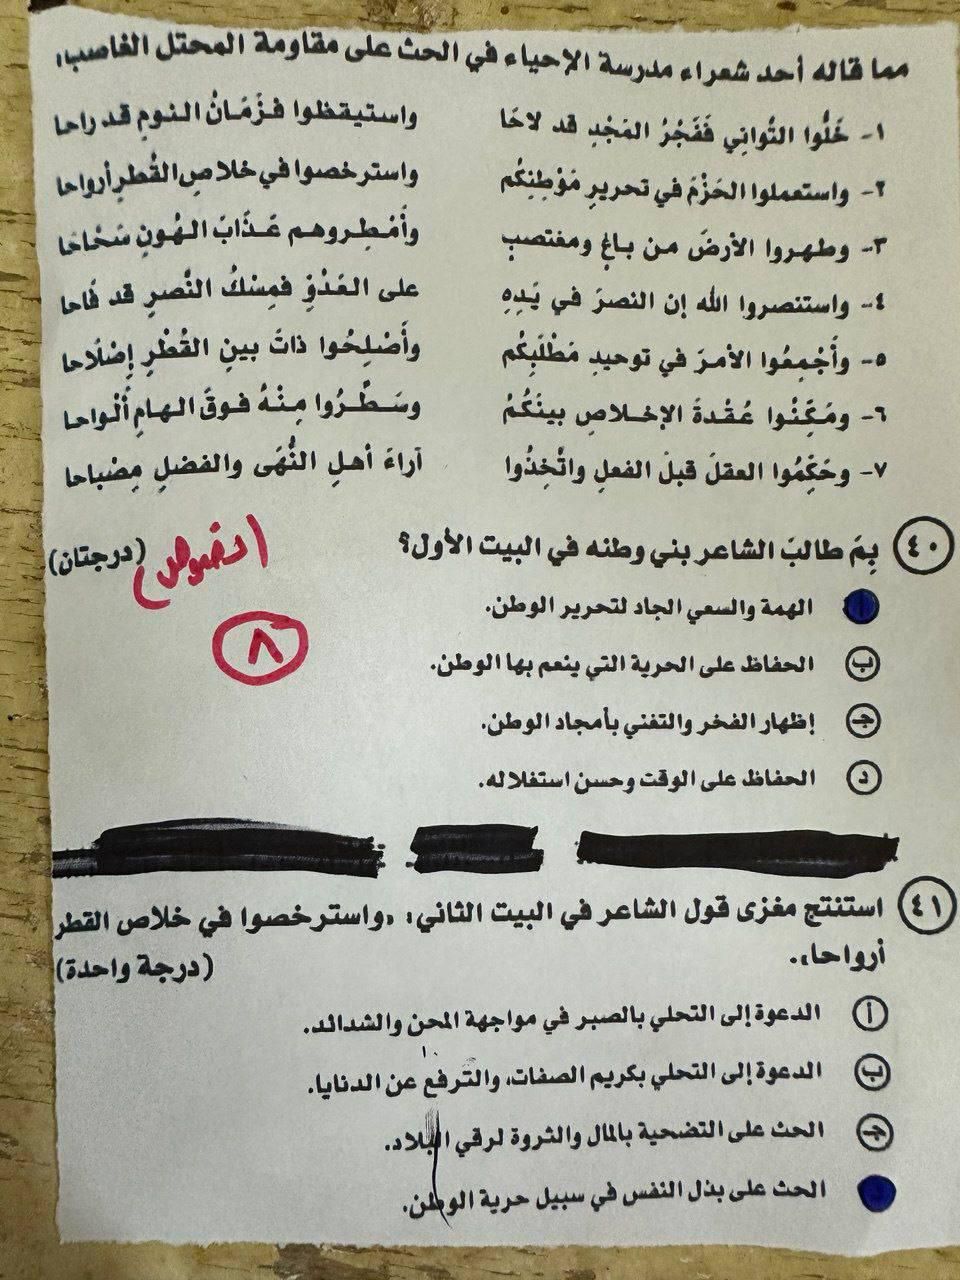 مما قاله أحد شعراء مدرسة الإحياء في الحث على مقاومة المحتل الغاصب:
١- خَلُّوا التَّوانِي فَفَجْرُ المَجْدِ قد لاحَا واستيقظوا فزَمَانُ النومِ قد راحا
٢- واستعملوا الحَزْمَ في تحريرِ مَوْطِنِكُم واسترخصوا في خلاصِ القُطرِ أرواحا
٣- وطهروا الأرضَ من باغٍ ومغتصبٍ وأَمْطِروهم عَذَابَ الهُونِ سَحَّاحَا
٤- واستنصروا الله إن النصرَ في يَدِهِ على العَدُوِّ فمِسْكُ النَّصرِ قد فَاحا
٥- وأَجْمِعُوا الأمرَ في توحيدِ مَطْلَبِكُم وأَصْلِحُوا ذاتَ بينِ القُطْرِ إصْلَاحا
٦- ومَكِّنُوا عُقْدةَ الإخلاصِ بينَكُمُ وسَطِّرُوا مِنْهُ فوقَ الهامِ أَلْواحا
٧- وحَكِّمُوا العقلَ قبلَ الفعلِ واتَّخِذُوا آراءَ أهلِ النُّهَى والفضلِ مِصْباحا
٤٠ بِمَ طالبَ الشاعر بني وطنه في البيت الأول؟ (درجتان)
(نصوص)
أ الهمة والسعي الجاد لتحرير الوطن.
٨
ب الحفاظ على الحرية التي ينعم بها الوطن.
جـ إظهار الفخر والتغني بأمجاد الوطن.
د الحفاظ على الوقت وحسن استغلاله.
٤١ استنتج مغزى قول الشاعر في البيت الثاني: «واسترخصوا في خلاص القطر
أرواحا». (درجة واحدة)
أ الدعوة إلى التحلي بالصبر في مواجهة المحن والشدائد.
ب الدعوة إلى التحلي بكريم الصفات، والترفع عن الدنايا.
جـ الحث على التضحية بالمال والثروة لرقي البلاد.
الحث على بذل النفس في سبيل حرية الوطن.